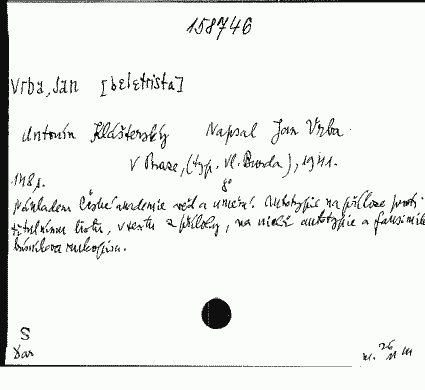 158746
Vrba, Jan [beletrista]
Antonín Klášterský Napsal Jan Vrba.
V Praze, (typ. Vl. Burda), 1941.
148 s. 8°
Nákladem České akademie věd a umění. Autotypie na příloze proti
titulnímu listu, v textu 2 přílohy, na nichž autotypie a faksimile
básníkova rukopisu.
S
Dar